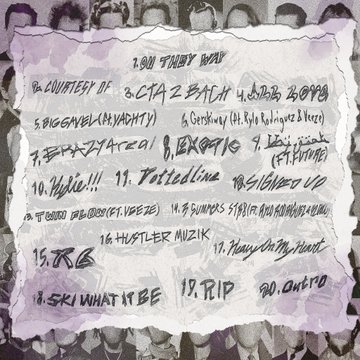 1. ON THEY WAY
2. COURTESY OF 3. CTA 2 BACH 4. ALL LOVE
5. BIG GAVEL (ft. YACHTY) 6. Gerskiway (ft. Rylo Rodriguez & Veeze)
7. BRAZY 4 real 8. EXOTIC 9. (FT. FUTURE)
10. Kylie!!! 11. Dotted line 12. SIGNED UP
13. TWIN FLOW (FT. VEEZE) 14. 3 SUMMERS STR8 (FT.
15. RG 16. HUSTLER MUZIK 17. Heavy On My Heart
18. SKI WHAT IT BE 19. RIP 20. Outro